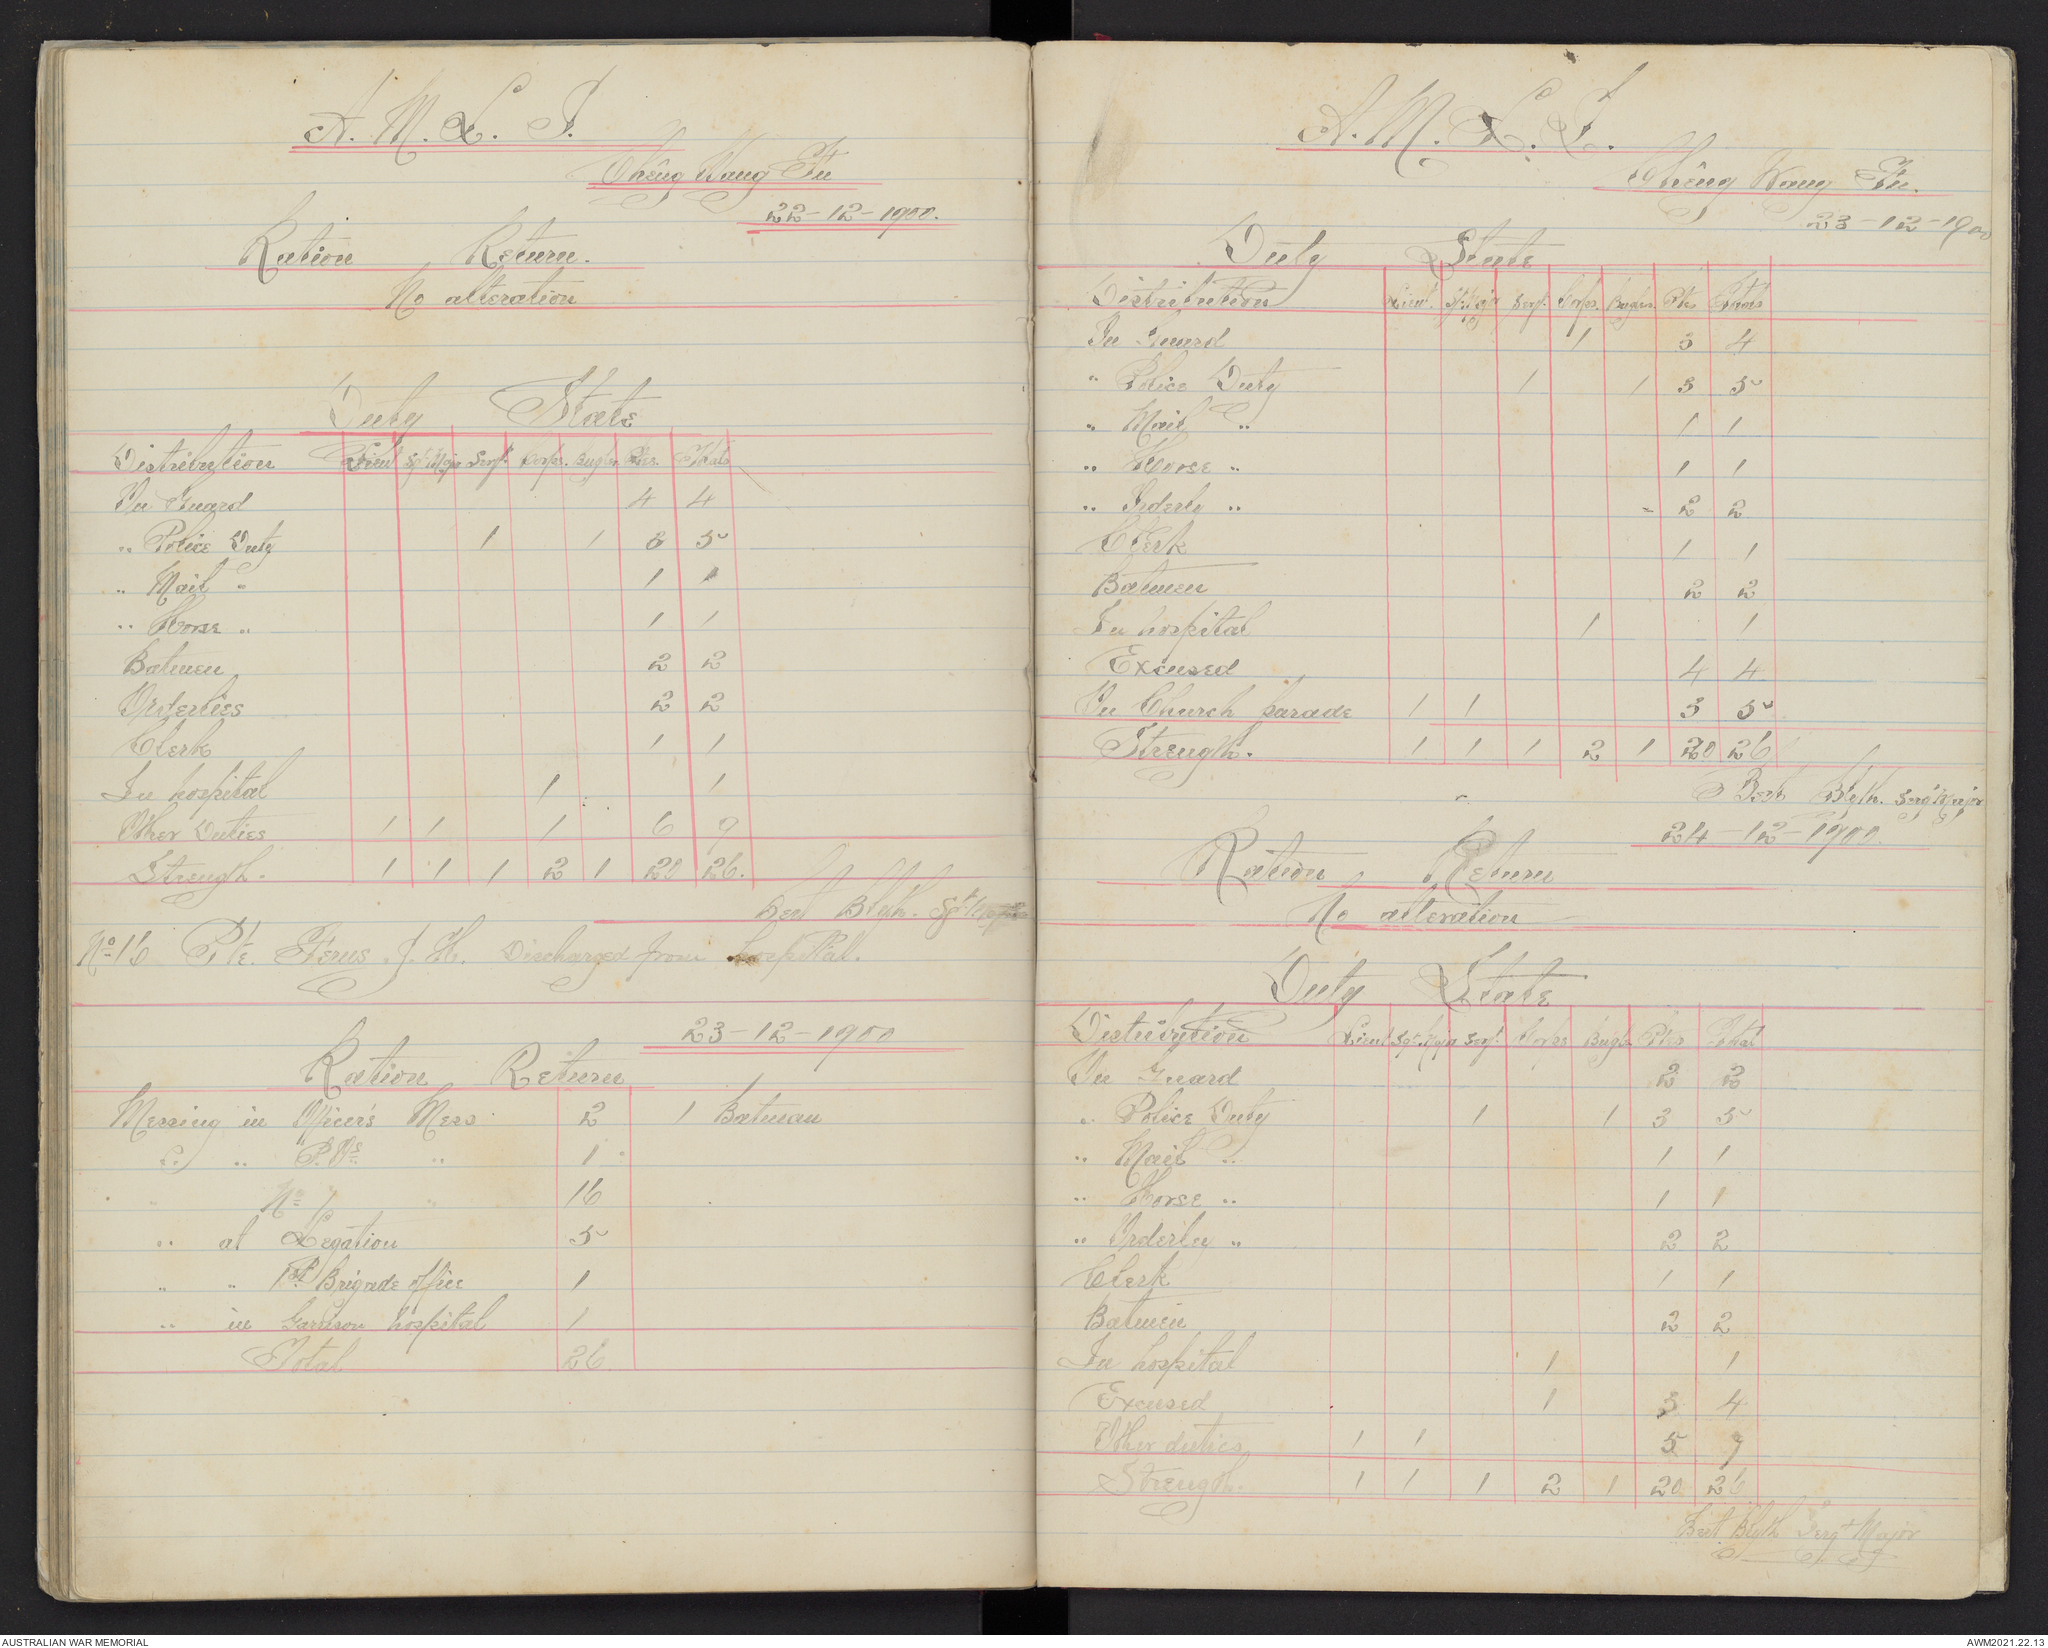 A. M. L. I.
Chêng Wang Fu
22-12-1900.
Ration Return.
No alteration
Duty State
Distribution Lieut Sgt Major Sergt. Corps. Bugler Ptes. Totals
On Guard 4 4
" Police Duty 1 1 3 5
" Mail " 1 1
" Horse " 1 1
Batmen 2 2
Orderlies 2 2
Clerk 1 1
In hospital 1 1
Other Duties 1 1 1 6 9
Strength. 1 1 1 2 1 20 26.
Bert Blyth. Sgt Major
No 16 Pte. J. H. Discharged from hospital.
23-12-1900
Ration Return
Messing in Officer's Mess 2 1 Batman
" " " 1
" No 1/2 " 16
" at Legation 5
" " 1st Brigade office 1
" in Garrison hospital 1
Total 26
A. M. L. I.
Chêng Wang Fu.
23-12-1900
Duty State
Distribution Lieut. Sgt. Major Sergt. Corps. Buglers. Ptes Totals
On Guard 1 3 4
" Police Duty 1 1 3 5
" Mail " 1 1
" Horse " 1 1
" Orderly " 2 2
Clerk 1 1
Batmen 2 2
In hospital 1 1
Excused 4 4
On Church parade 1 1 3 5
Strength. 1 1 1 2 1 20 26
Bert Blyth. Sergt Major
24-12-1900.
Ration Return
No alteration
Duty State
Distribution Lieut Sgt. Major Sergt. Corps Bugler Ptes Total
On Guard 2 2
" Police Duty 1 1 3 5
" Mail " 1 1
" Horse " 1 1
" Orderley " 2 2
Clerk 1 1
Batmen 2 2
In hospital 1 1
Excused 1 3 4
Other duties 1 1 5 7
Strength. 1 1 1 2 1 20 26
Bert Blyth Sergt Major
AUSTRALIAN WAR MEMORIAL
AWM2021.22.13